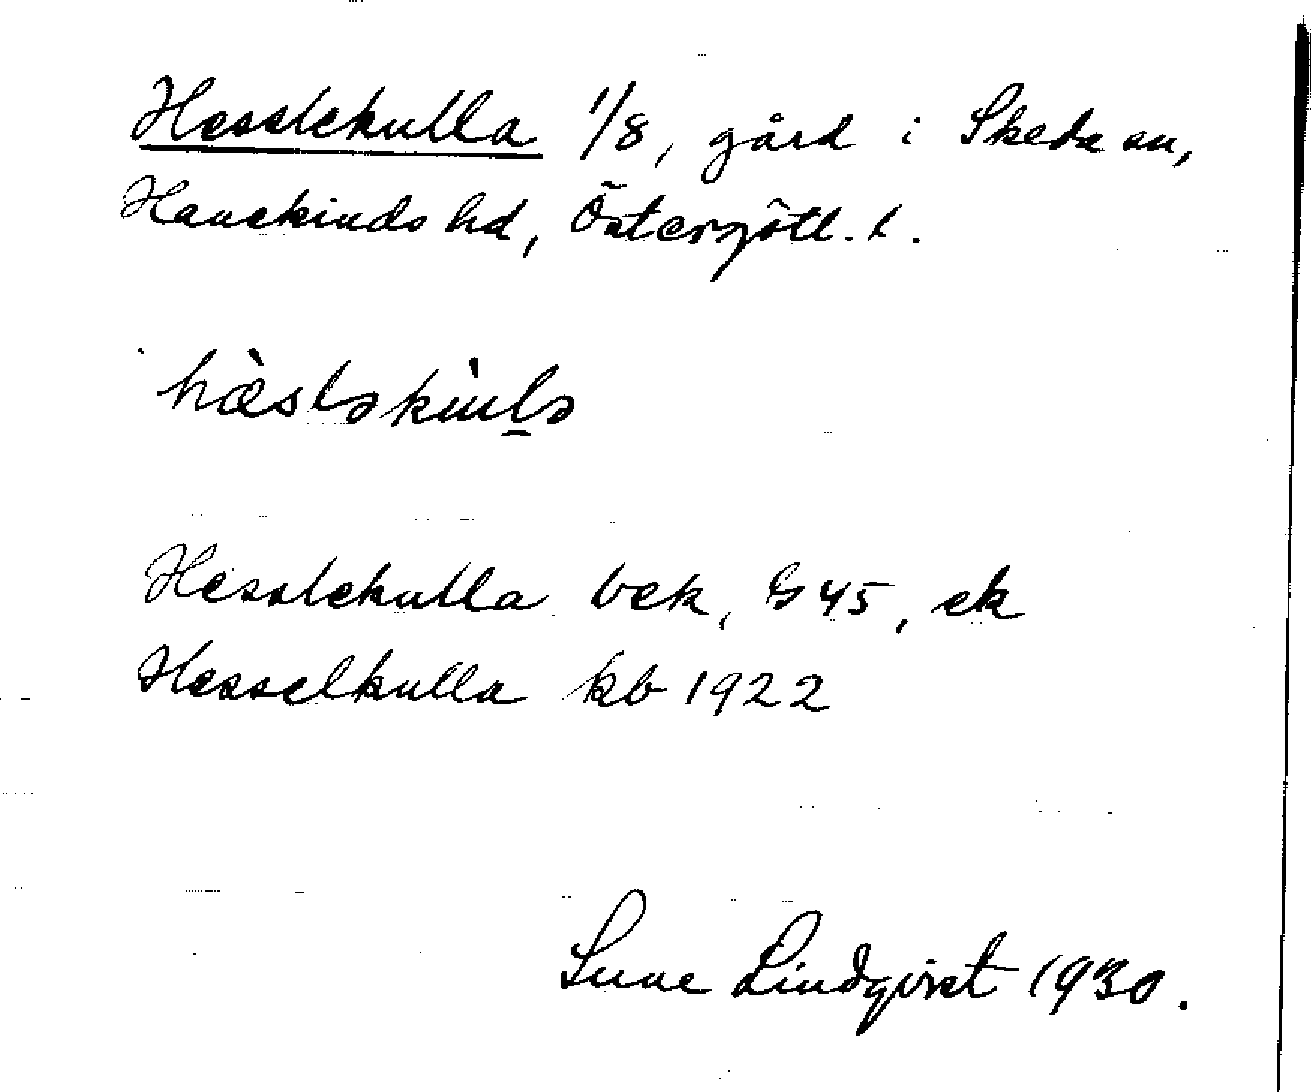 Hesslekulla 1/8, gård i Skeda sn,
Hanekinds hd, Östergötl. l.
Hesslekulla bek, G 45, ek
Hesselkulla kb 1922
Sune Lindqvist 1930.